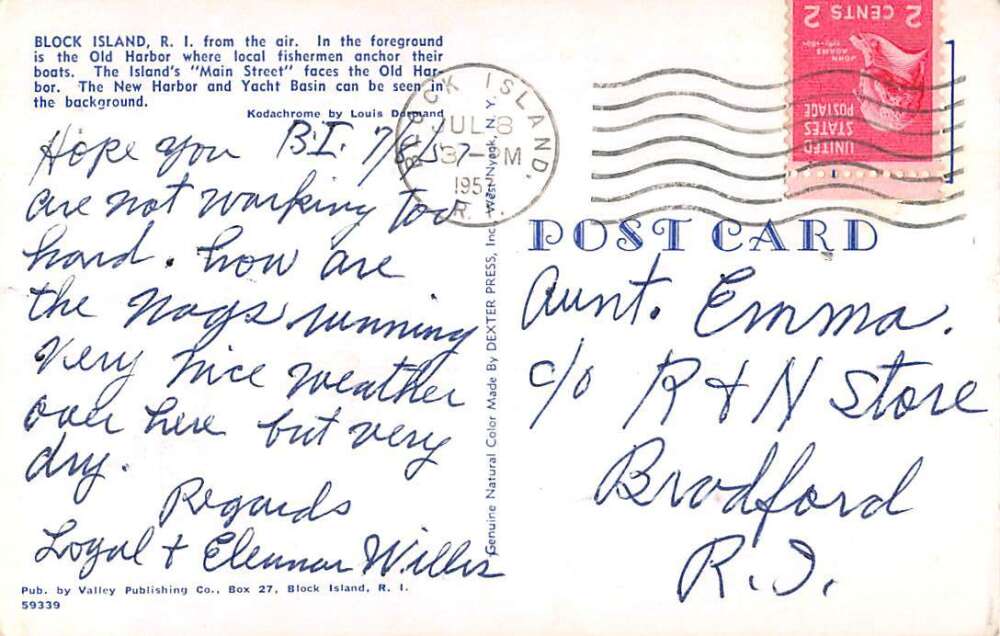 BLOCK ISLAND, R. I. from the air. In the foreground
is the Old Harbor where local fishermen anchor their
boats. The Island's "Main Street" faces the Old Har-
bor. The New Harbor and Yacht Basin can be seen in
the background.
Kodachrome by Louis Dormand
B.I. 7/8/57
Hope you
are not working too
hard. how are
the Nags running
Very nice weather
over here but very
dry.
Regards
Loyal + Eleanor Willis
Pub. by Valley Publishing Co., Box 27, Block Island, R. I.
59339
Genuine Natural Color Made By DEXTER PRESS, Inc. West Nyack, N. Y.
BLOCK ISLAND,
JUL 8
3 - M
1957
R. I.
2 CENTS 2
JOHN ADAMS
UNITED
STATES
POSTAGE
POST CARD
Aunt. Emma.
c/o R + N Store
Bradford
R.I.